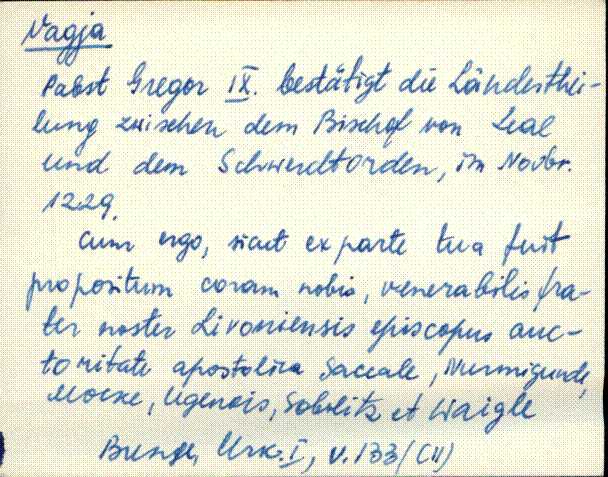 Vagja
Pabst Gregor IX. bestätigt die Länderthei-
lung zwischen dem Bischof von Leal
und dem Schwerdtorden, im Novbr.
1229.
Cum ergo, sicut ex parte tua fuit
propositum coram nobis, venerabilis fra-
ter noster Livoniensis episcopus auc-
toritate apostolica Saccale, Nurmigunde,
Mocke, Ugenois, Sobolitz et Waigle
Bunge, Urk. I, v. 133/(CII)